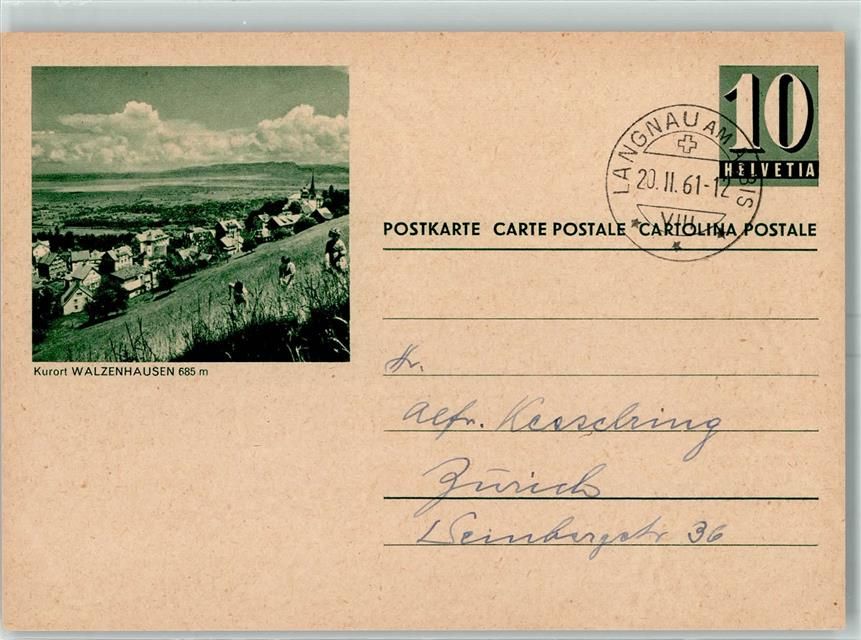 10
HELVETIA
LANGNAU AM ALBIS
20. II. 61-12
VIII
POSTKARTE CARTE POSTALE CARTOLINA POSTALE
Kurort WALZENHAUSEN 685 m
Hr.
Alfr. Kesselring
Zürich
Weinbergstr. 36